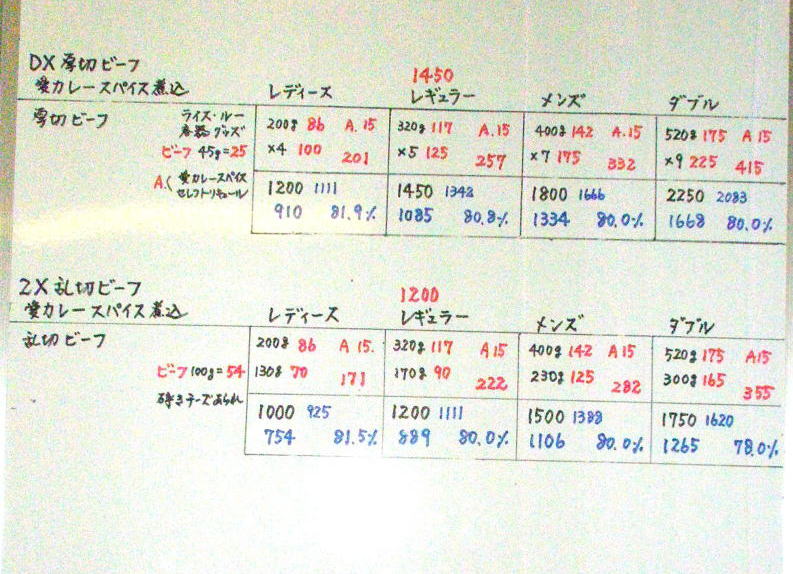 DX 厚切ビーフ
愛カレースパイス煮込
レディース 1450 レギュラー メンズ ダブル
厚切ビーフ ライス・ルー
容器 グッズ
ビーフ 45g=25
A.( 愛カレースパイス
セレクトリキュール
200g 86 A.15 320g 117 A.15 400g 142 A.15 520g 175 A 15
×4 100 201 ×5 125 257 ×7 175 332 ×9 225 415
1200 1111 1450 1342 1800 1666 2250 2083
910 81.9% 1085 80.8% 1334 80.0% 1668 80.0%
2X 乱切ビーフ
愛カレースパイス煮込
レディース 1200 レギュラー メンズ ダブル
乱切ビーフ
ビーフ 100g=54
砕きチーズあられ
200g 86 A 15. 320g 117 A15 400g 142 A 15 520g 175 A15
130g 70 171 170g 90 222 230g 125 282 300g 165 355
1000 925 1200 1111 1500 1388 1750 1620
754 81.5% 889 80.0% 1106 80.0% 1265 78.0%